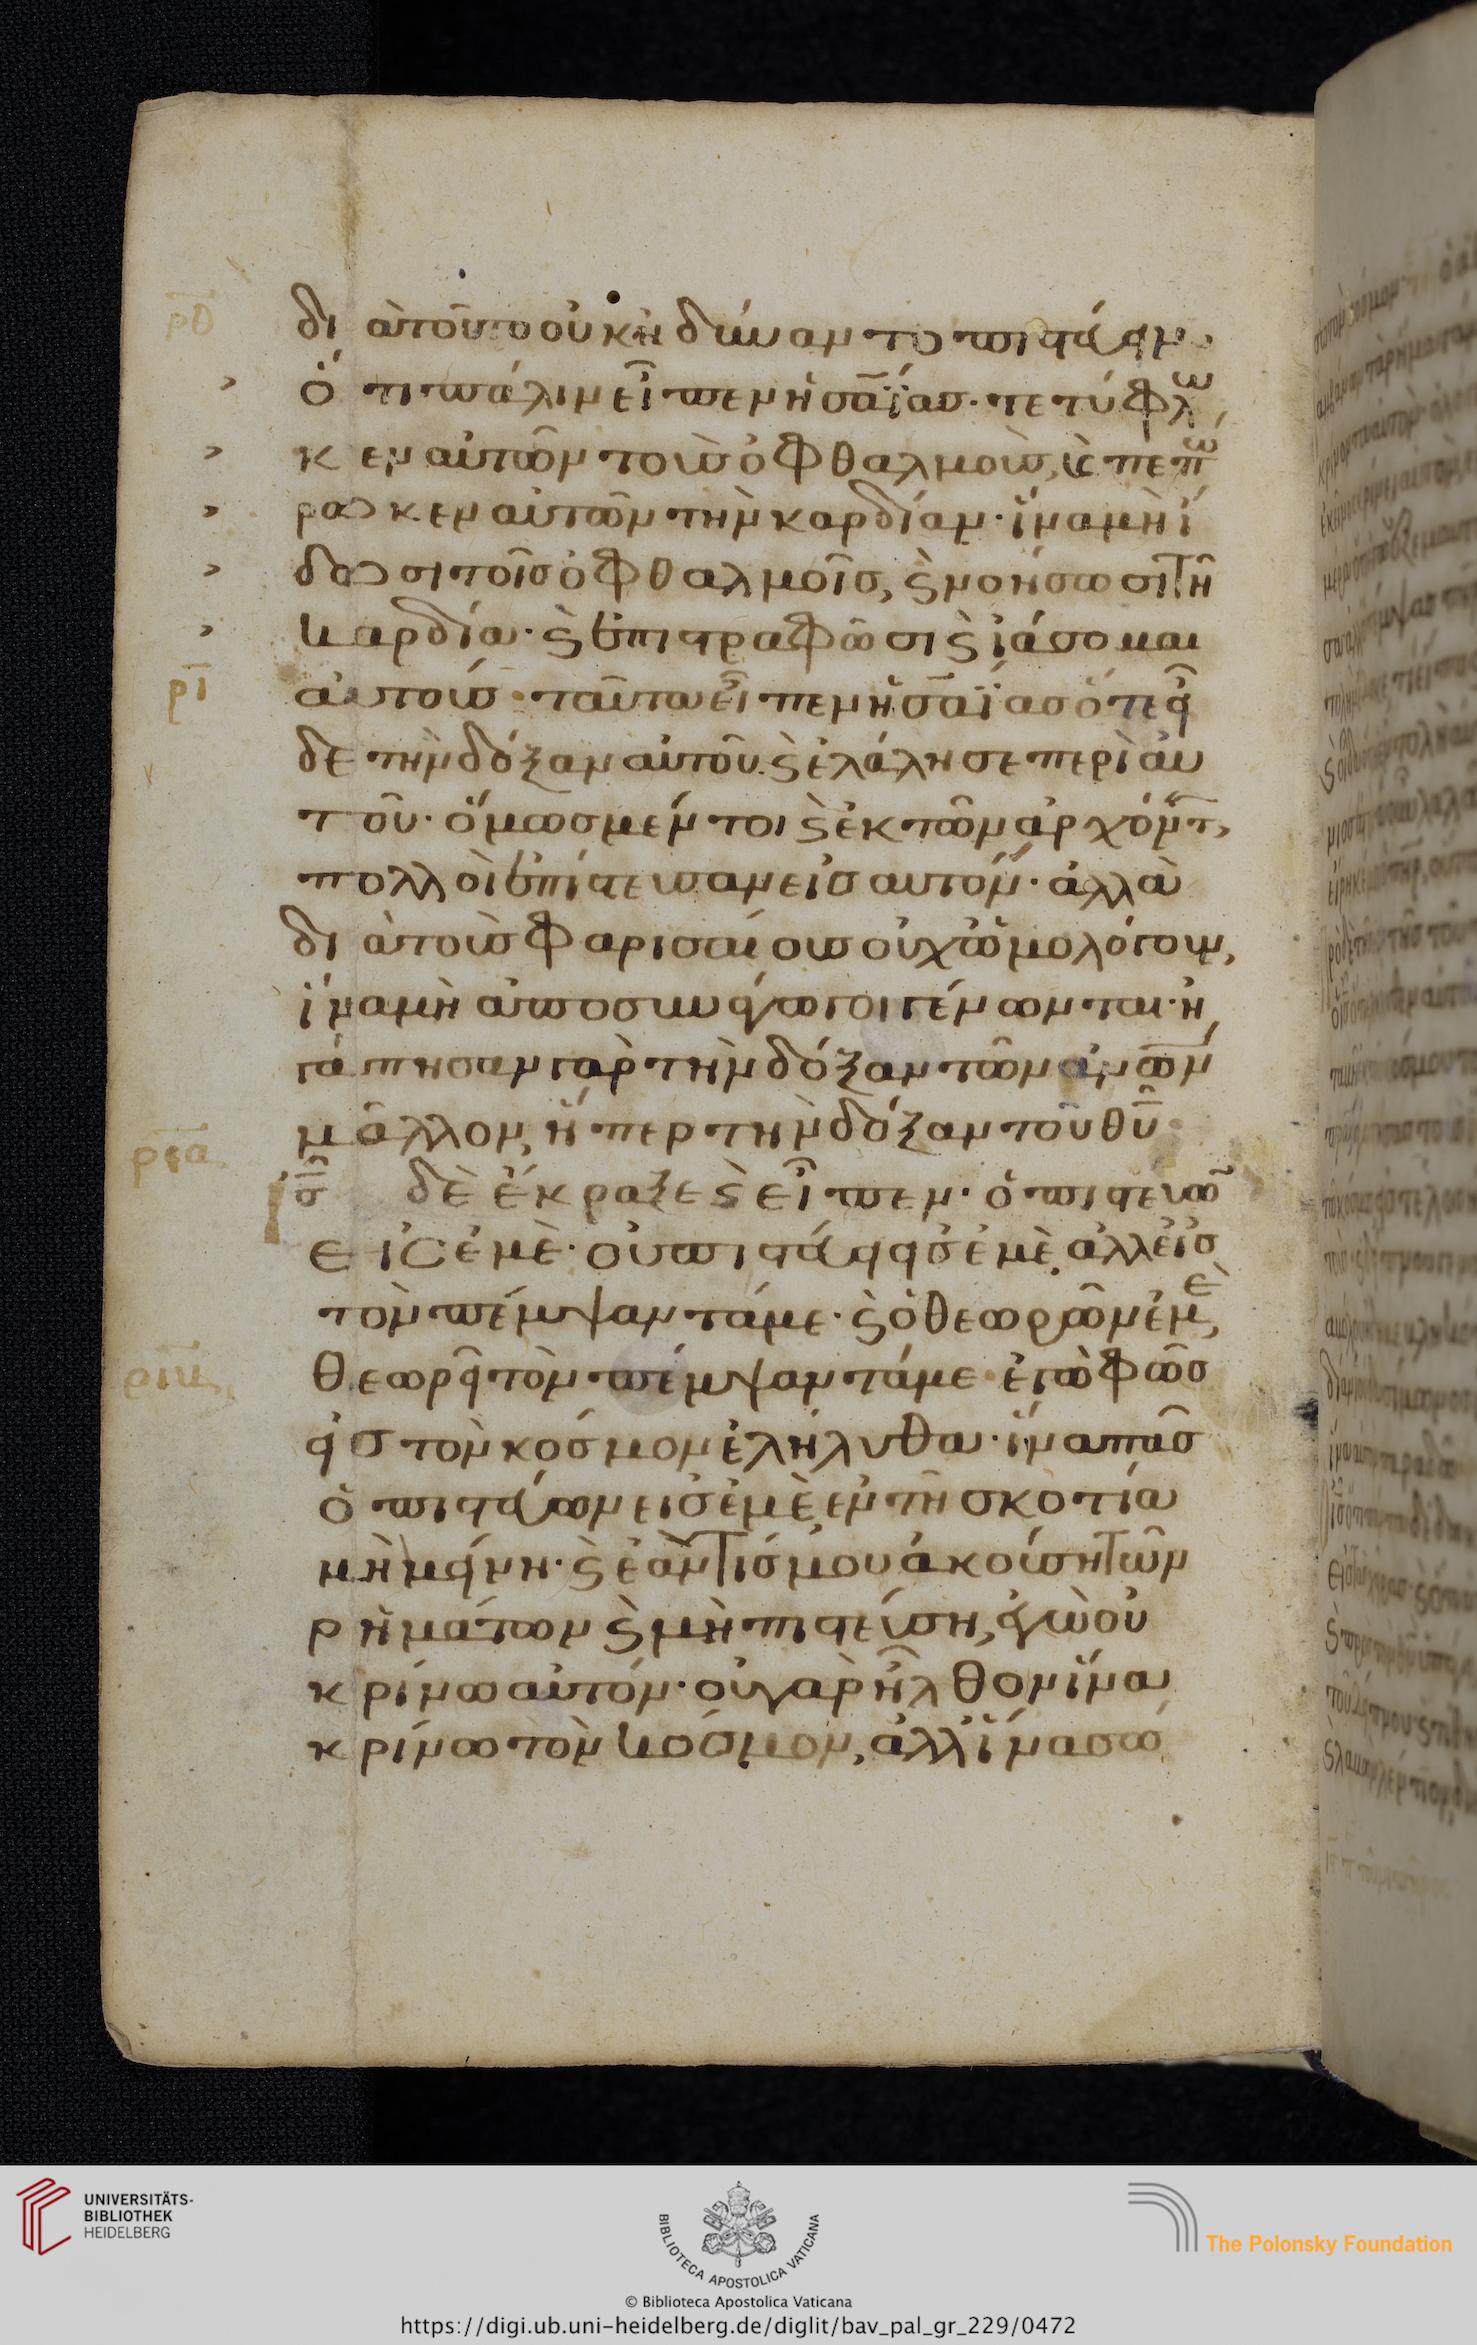 ρθ
διὰ τοῦτο οὐκ ἠδύναντο πιστεύειν,
ὅτι πάλιν εἶπεν ἡσαΐας· τετύφλω
κεν αὐτῶν τοὺς ὀφθαλμοὺς, ϗ πεπώ
ρωκεν αὐτῶν τὴν καρδίαν· ἵνα μὴ ἴ
δωσι τοῖς ὀφθαλμοῖς, ϗ νοήσωσι τῆ
καρδία· ϗ ἐπιστραφῶσι ϗ ἰάσομαι
ρι
αὐτούς· ταῦτα εἶπεν ἡσαΐας ὅτε εἶ
δε τὴν δόξαν αὐτοῦ. ϗ ἐλάλησε περὶ αὐ
τοῦ· ὅμως μέντοι ϗ ἐκ τῶν ἀρχόντ,
πολλοὶ ἐπίστευσαν εἰς αυτόν· ἀλλὰ
διὰ τοὺς φαρισαίους οὐχ ὡμολόγουν,
ἵνα μὴ ἀποσυνάγωγοι γένωνται· ἠ
γάπησαν γαρ τὴν δόξαν τῶν ἀνων
μᾶλλον, ἤπερ τὴν δόξαν τοῦ θυ
ρια
ις δὲ ἔκραξε ϗ εἶπεν· ὁ πιστεύω
εἰς ἐμὲ· οὐ πιστεύει εἰς ἐμὲ, ἀλλ εἰς
τὸν πέμψαντά με· ϗ ὁ θεωρῶν ἐμὲ,
θεωρεῖ τὸν πέμψαντά με· ἐγὼ φῶς
εἰς τὸν κόσμον ἐλήλυθα· ἵνα πᾶς
ὁ πιστεύων εις ἐμὲ, ἐν τῆ σκοτία
μὴ μείνη· ϗ ἐάν τίς μου ἀκούση τῶν
ρημάτων ϗ μὴ πιστεύση, ἐγὼ οὐ
κρίνω αὐτόν· οὐ γὰρ ἦλθον ἵνα
κρίνω τὸν κόσμον, ἀλλ ἵνα σώ
UNIVERSITÄTS-
BIBLIOTHEK
HEIDELBERG
BIBLIOTECA APOSTOLICA VATICANA
© Biblioteca Apostolica Vaticana
The Polonsky Foundation
https://digi.ub.uni-heidelberg.de/diglit/bav_pal_gr_229/0472